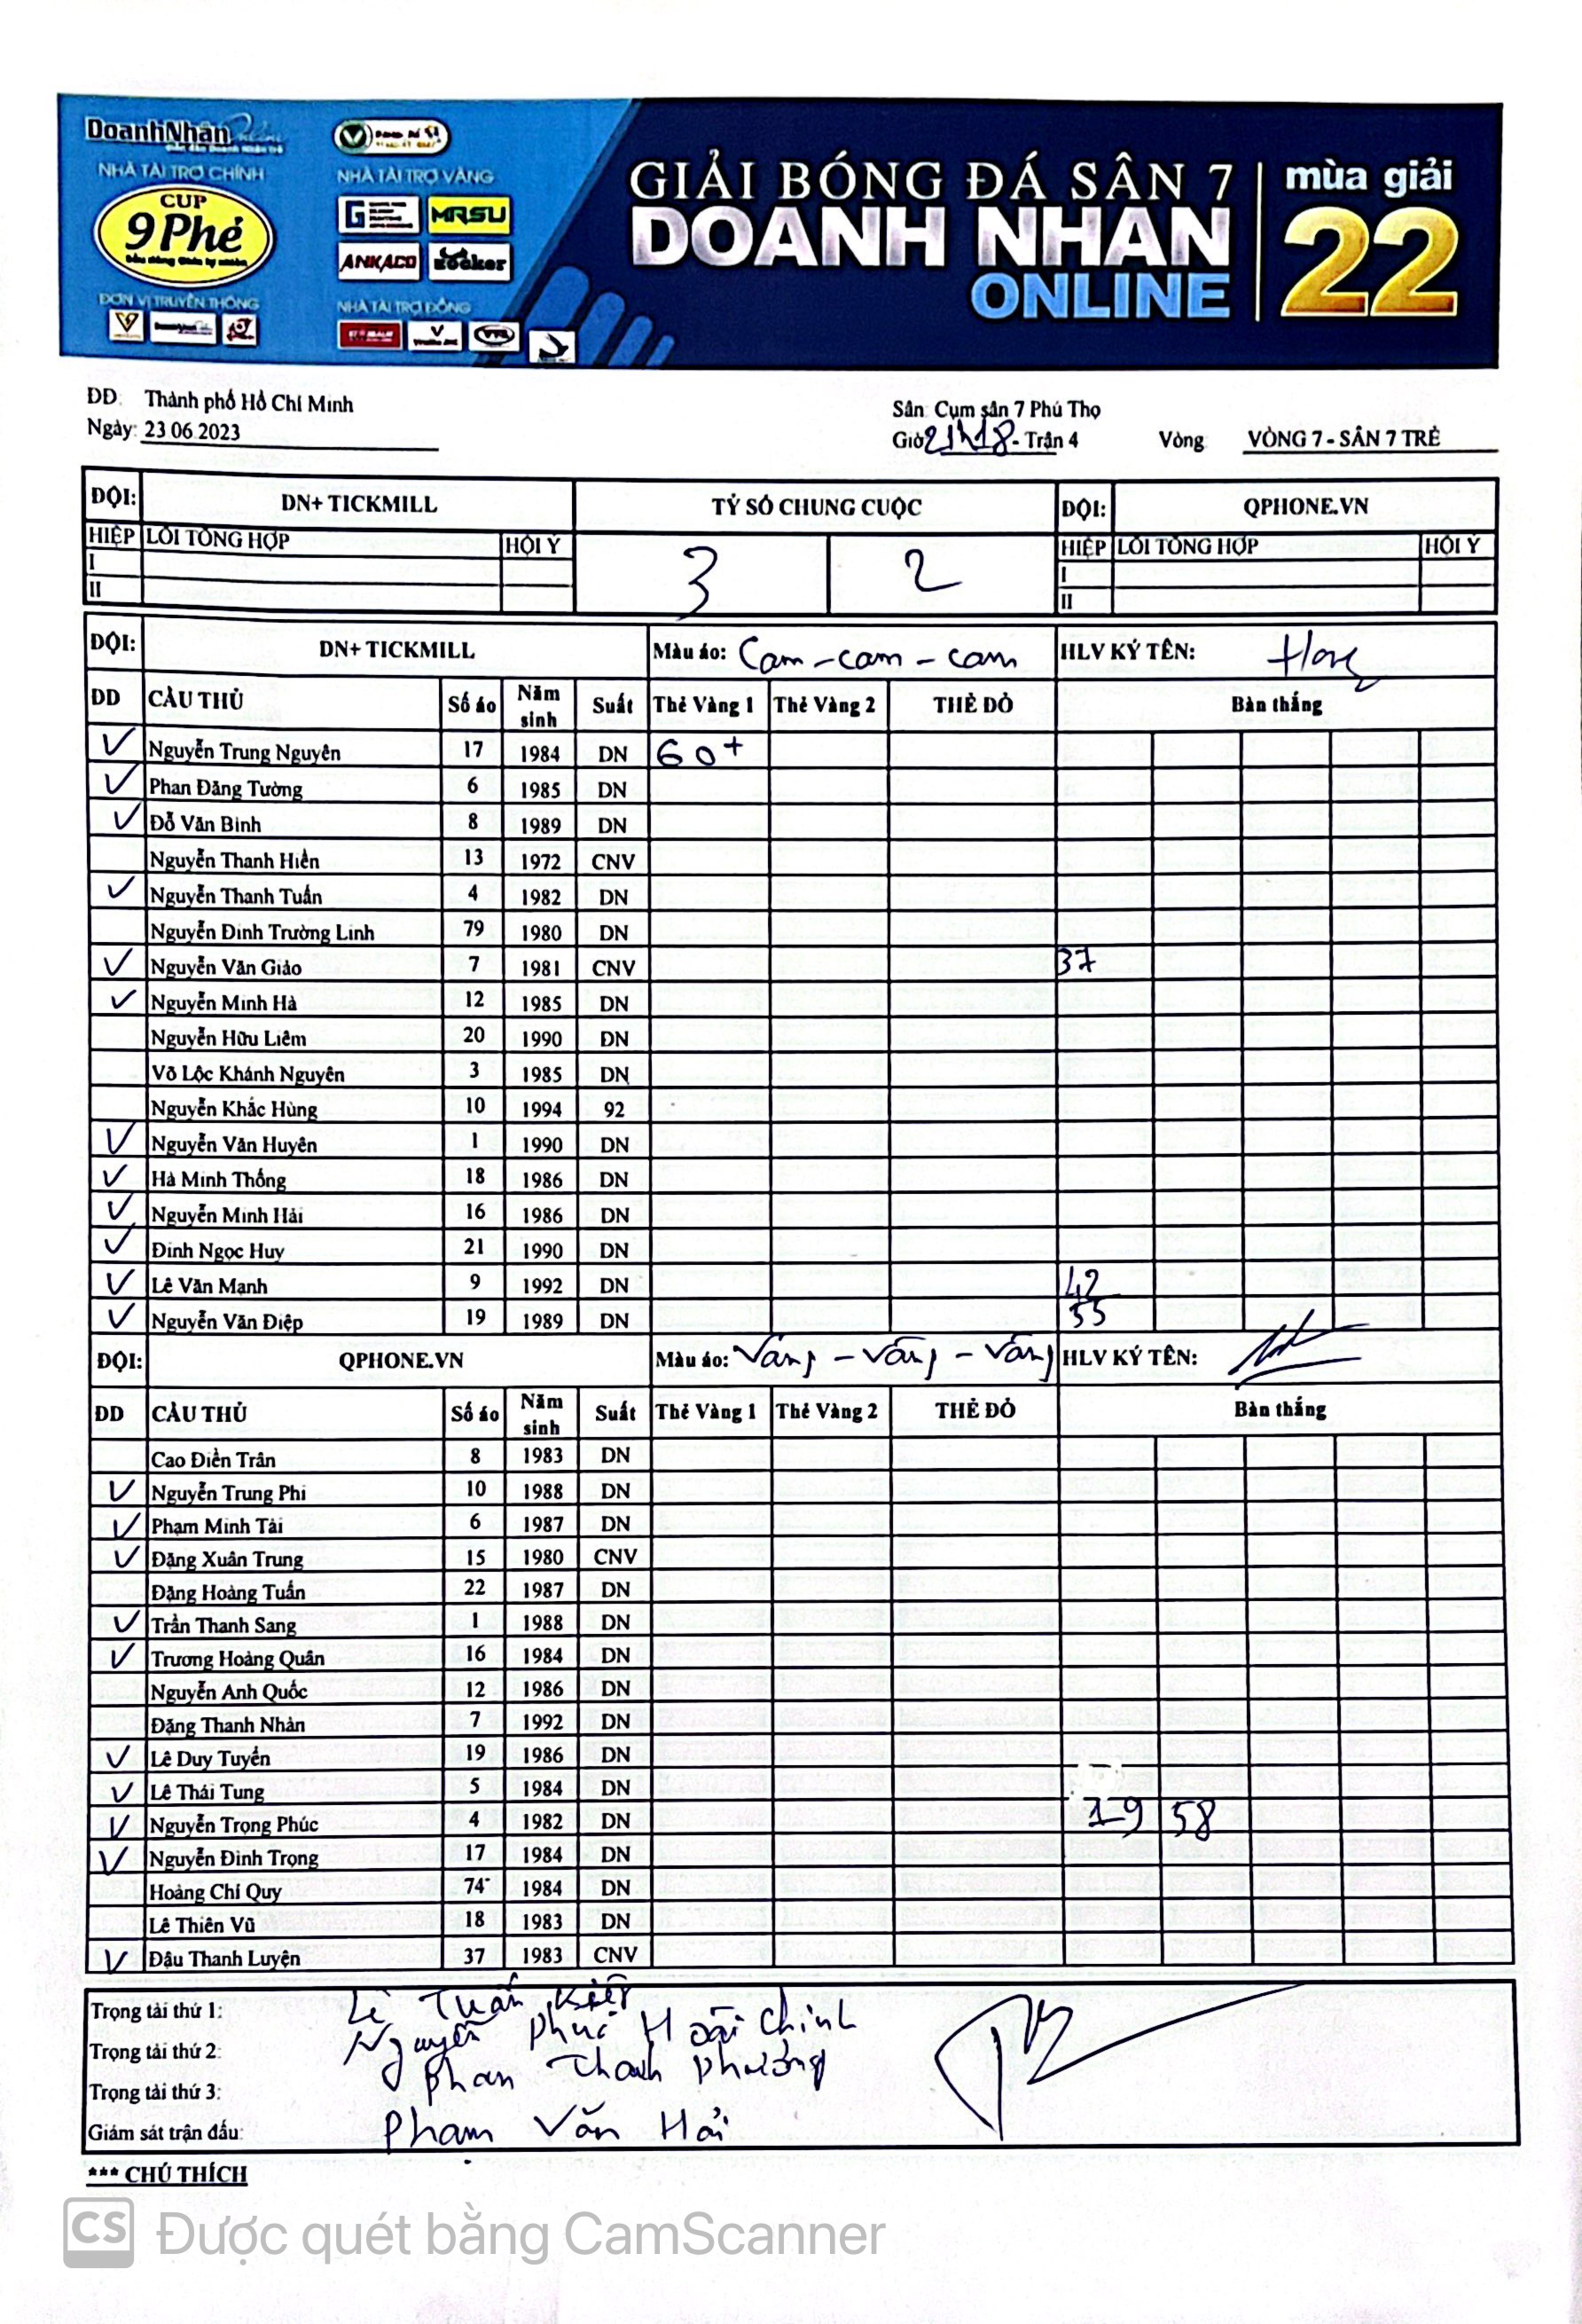 DoanhNhân Online
NHÀ TÀI TRỢ CHÍNH
NHÀ TÀI TRỢ VÀNG
CUP
9Phẻ
MRSU
ANKACO
ĐƠN VỊ TRUYỀN THÔNG
NHÀ TÀI TRỢ ĐỒNG
GIẢI BÓNG ĐÁ SÂN 7
DOANH NHAN
ONLINE
mùa giải
22
ĐĐ: Thành phố Hồ Chí Minh
Ngày: 23 06 2023
Sân: Cụm sân 7 Phú Thọ
Giờ 21h18 - Trận 4 Vòng VÒNG 7 - SÂN 7 TRẺ
ĐỘI: DN+ TICKMILL TỶ SỐ CHUNG CUỘC ĐỘI: QPHONE.VN
HIỆP LỖI TỔNG HỢP HỘI Ý 3 2 HIỆP LỖI TỔNG HỢP HỘI Ý
I I
II II
ĐỘI: DN+ TICKMILL Màu áo: Cam - cam - cam HLV KÝ TÊN:
DD CẦU THỦ Số áo Năm sinh Suất Thẻ Vàng 1 Thẻ Vàng 2 THẺ ĐỎ Bàn thắng
✓ Nguyễn Trung Nguyên 17 1984 DN 60+
✓ Phan Đăng Tường 6 1985 DN
✓ Đỗ Văn Bình 8 1989 DN
Nguyễn Thanh Hiền 13 1972 CNV
✓ Nguyễn Thanh Tuấn 4 1982 DN
Nguyễn Đình Trường Linh 79 1980 DN
✓ Nguyễn Văn Giảo 7 1981 CNV 37
✓ Nguyễn Minh Hà 12 1985 DN
Nguyễn Hữu Liêm 20 1990 DN
Võ Lộc Khánh Nguyên 3 1985 DN
Nguyễn Khắc Hùng 10 1994 92
✓ Nguyễn Văn Huyên 1 1990 DN
✓ Hà Minh Thống 18 1986 DN
✓ Nguyễn Minh Hải 16 1986 DN
✓ Đinh Ngọc Huy 21 1990 DN
✓ Lê Văn Mạnh 9 1992 DN 42
✓ Nguyễn Văn Điệp 19 1989 DN 55
ĐỘI: QPHONE.VN Màu áo: Vàng - Vàng - Vàng HLV KÝ TÊN:
DD CẦU THỦ Số áo Năm sinh Suất Thẻ Vàng 1 Thẻ Vàng 2 THẺ ĐỎ Bàn thắng
Cao Điền Trân 8 1983 DN
✓ Nguyễn Trung Phi 10 1988 DN
✓ Phạm Minh Tài 6 1987 DN
✓ Đặng Xuân Trung 15 1980 CNV
Đặng Hoàng Tuấn 22 1987 DN
✓ Trần Thanh Sang 1 1988 DN
✓ Trương Hoàng Quân 16 1984 DN
Nguyễn Anh Quốc 12 1986 DN
Đặng Thanh Nhàn 7 1992 DN
✓ Lê Duy Tuyển 19 1986 DN
✓ Lê Thái Tung 5 1984 DN
✓ Nguyễn Trọng Phúc 4 1982 DN 19 58
✓ Nguyễn Đình Trọng 17 1984 DN
Hoàng Chí Quy 74 1984 DN
Lê Thiên Vũ 18 1983 DN
✓ Đậu Thanh Luyện 37 1983 CNV
Trọng tài thứ 1: Lê Tuấn Kiệt
Trọng tài thứ 2: Nguyễn Phúc Hoài Chinh
Trọng tài thứ 3: Phan Thanh Phương
Giám sát trận đấu: Phạm Văn Hải
*** CHÚ THÍCH
CS Được quét bằng CamScanner